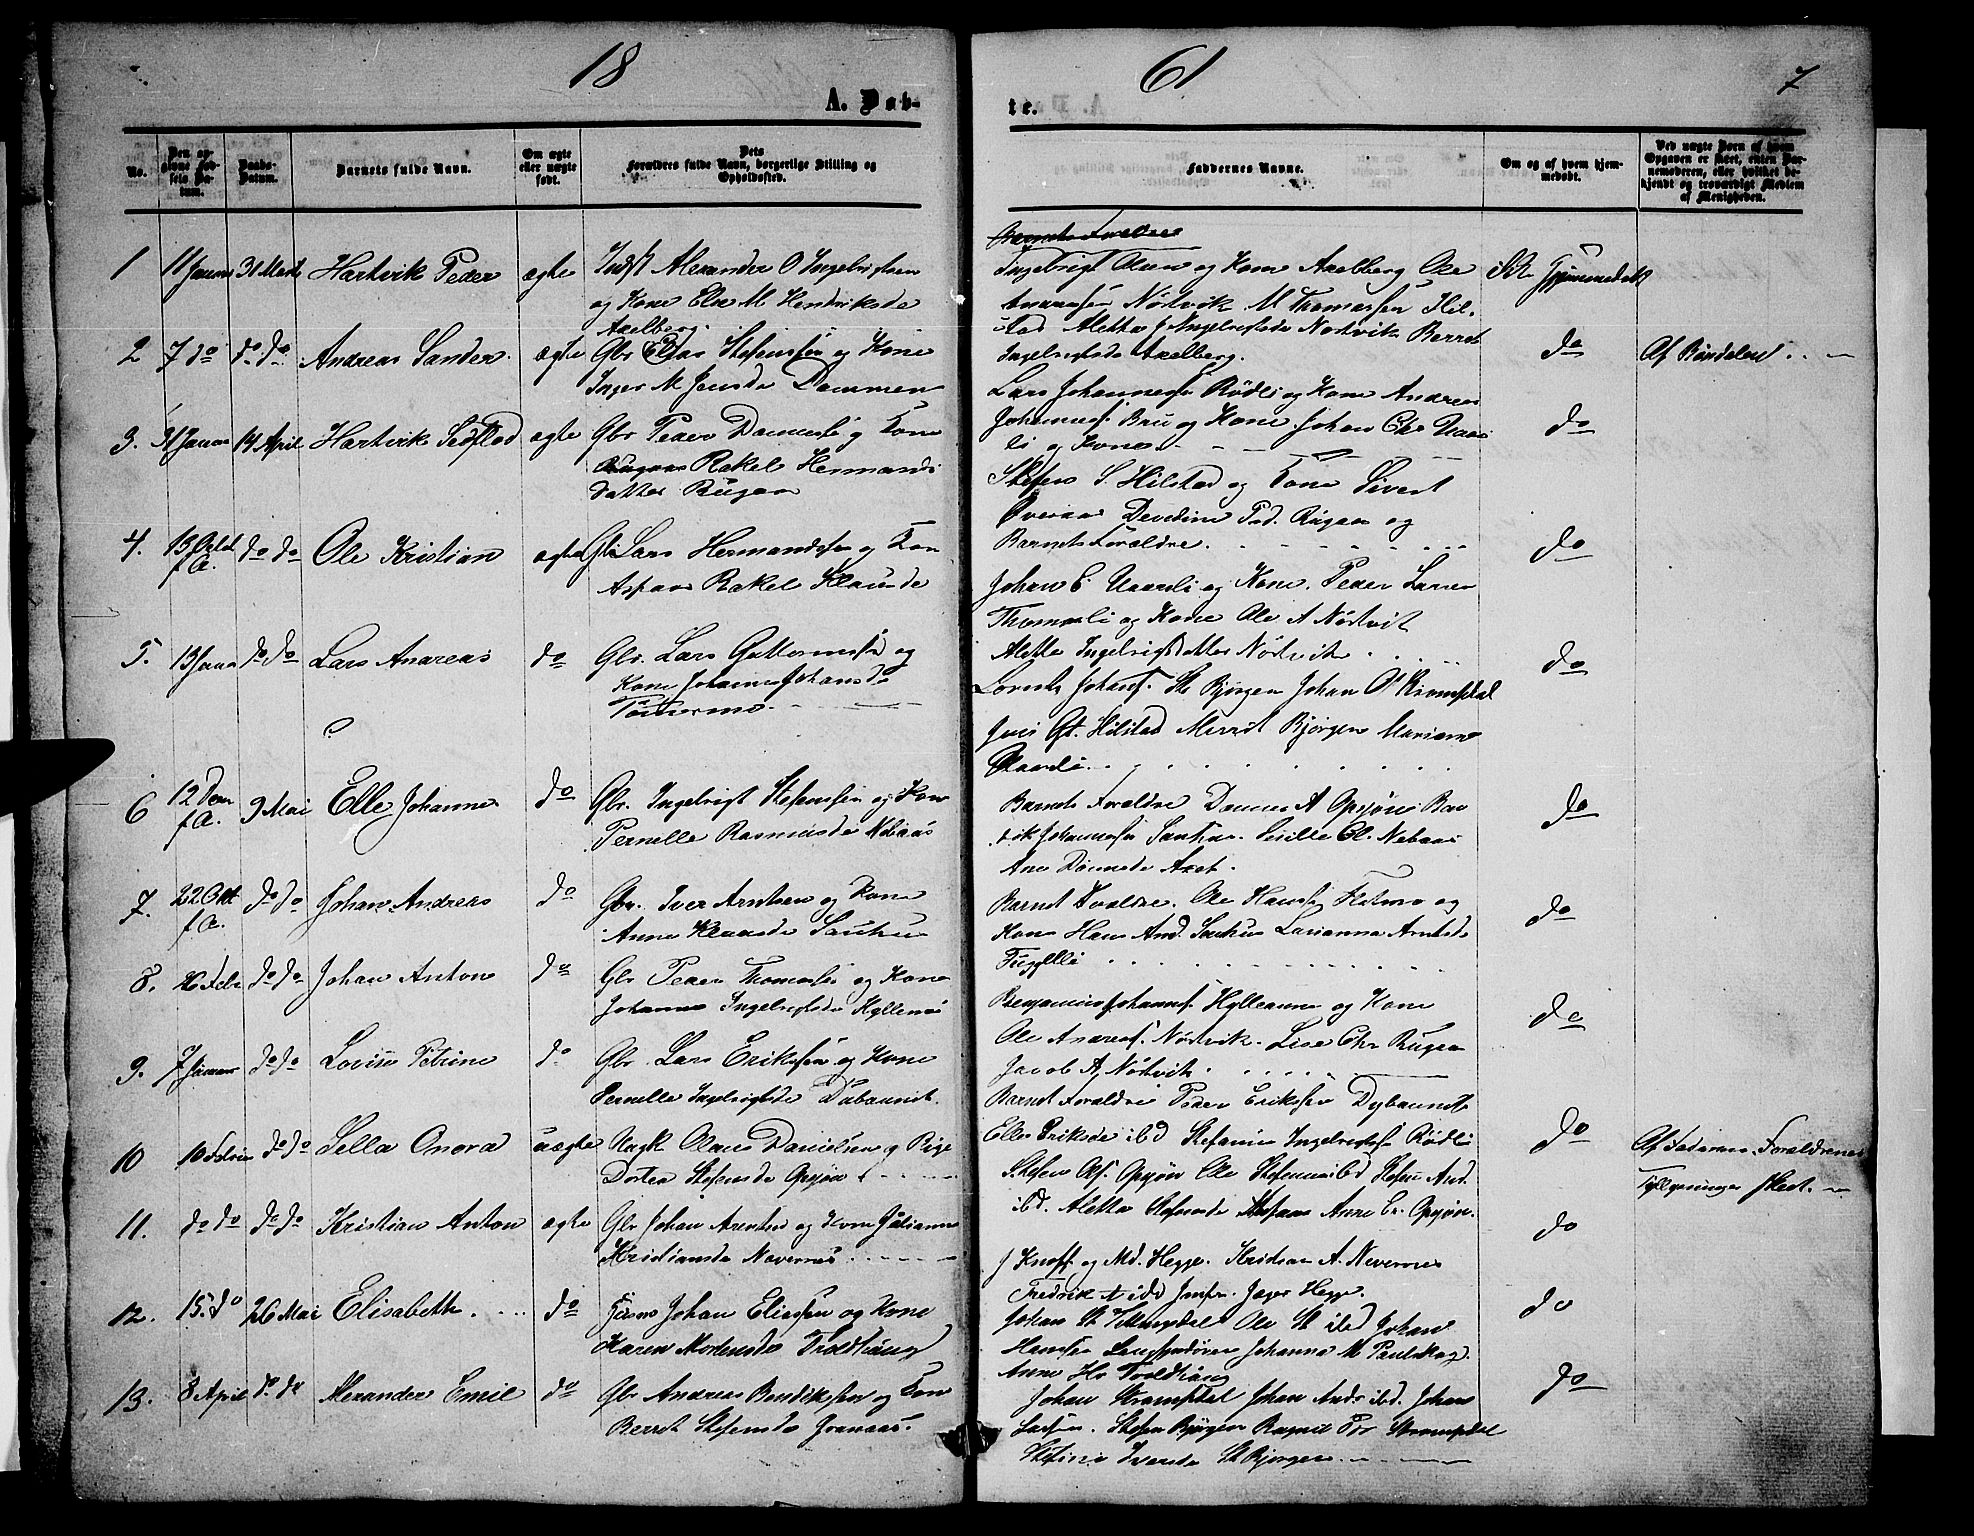 18 61 7
A. Døb- te.
No.
Den op-
givne Fød-
sels Da-
tum.
Daabs-
Datum.
Barnets fulde Navn.
Om ægte
eller uægte
født.
Dets
Forældres fulde Navn, borgerlige Stilling og
Opholdssted.
Faddernes Navne.
Om og af hvem hjem-
medøbt.
Ved uægte Børn af hvem
Opgaven er skeet, enten Bar-
nemoderen, eller hvilket be-
kjendt og troværdigt Medlem
af Menigheden.
Barnets Forældre
1 11 Januar 31 Marts Hartvik Peder ægte Indst Alexander O Ingebrigtsen
og Kone Else M Hendriksdr
Axelberg.
Ingebrigt Olsen og Kone Axelberg Ole
Nørtvik M Thomassen Hil-
stad Aletta J Ingelrigtsdr Nørtvik Berret
Ingelrigtsdr Axelberg.
Ik Hjemmedøbt
2 7 do do do Andreas Sander. ægte Gbr Elias Stefensen og Kone
Inger M Jensdr Dammen
Lars Johannessen Rødli og Kone Andreas
Johannesf. Bru og Kone Johan Chr Uaar
li og Kone
do
Af Bøndelend
3. 31 Januar 14 April Hartvik Sedstad ægte Gbr Peder Danielsen og Kone
Rakel Hermands
datter Rugaas
Stefen S. Hilstad og Kone Sivert
Øveraas Devedine Ped. Rugaas og
Barnets Forældre.
do
4. 13 Oktb
f. A. do do Ole Kristian ægte Gbr Lars Hermandsen og Kone
Aspaas Rakel Klausdr
Johan C. Uaarli og Kone. Peder Larsen
Thomasli og Kone Ole A Nørtvik
Aletta Ingelrigtsdatter Nørtvik
do
5. 13 Janua do do Lars Andreas do Gbr. Lars Guttormsen og
Kone Johanna Johansdr
Tømermo.
Lorents Johansf. St Bjørgen Johan O Strømpdal
Iver Gt. Hilstad Merrit Bjørgen Mariane
Uaarli
do
6 12 Decm
f. A. 9 Mai Elle Johanne do Gbr. Ingelrigt Stefensen og Kone
Pernelle Rasmusdr Nebaas
Barnets Forældre Dannes A Opsjøn Bar
dik Johannesen Sauthus. Sesille Ol. Nebaas
Ane Danesdr Axet.
do
7. 22 Okt
f. A. do do Johan Andreas do Gbr. Iver Arntsen og Kone
Anne Klausdr Sauthus
Barnet Forældre. Ole Hansen Flatmo og
Kone Hans And. Sauthus Larianna Arntsdr
Fugellli
do
8. 26 Febr do do Johan Anton do Gbr Peder Thomasli og Kone
Johanna Ingelrigtsdr Hyllenæs
Benjamin Johannsf. Hylleaunet og Kone
Ole Andreasf. Nørtvik. Lise Chr Rugaas
Jacob A. Nørtvik.
do
9. 7 Januar do do Lovise Petrine do Gbr. Lars Eriksen og Kone
Pernelle Ingelrigtsdr Dybaunet.
Barnet Forældre Peder Eriksen Dybaunet
Ellen Eriksdr ibd Stefanius Ingelrigtsf. Rødli
do
10 10 Febru do do Sella Onora uægte Ungk Olaus Danielsen og Pige
Dortea Stefensdr Opsjøn
Stefen Olsf. Opsjøn Ole Stefensen ibd Stefen And.
ibd. Aletta Stefensdr Anne Er. Opsjøn.
do
Af Faderen Forældrenes
Oplysninger skeet.
11. do do do do Kristian Anton ægte Gbr Johan Arntsen og Kone Julianna
Kristiansdr Nevernes
J Knoff og Md. Hegge. Kristian A. Nevernes
Fredrik A ibd Jensen. Jæger Hegge.
do
12. 15 do 26 Mai Elisabeth do Johan Eliassen og Kone
Karen Mortensdr Troldhaug
Johan St Strømpdal Ole St ibd Johan
Hansen Johanna M Paulskag.
Anne Hr Troldhaug
do
13. 8 April do do Alexander Emil do Gbr Andreas Bendiksen og Kone
Berret Stefensdr Granaas.
Johan Strømpdal Johan Andr ibd. Johan
Larsen. Stefen Bjørgen Ragnil Per Strømpdal
Stefine Iversdr St Bjørgen
do